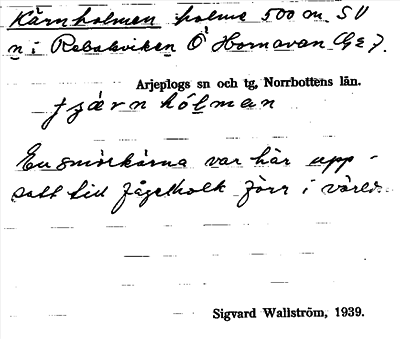 Kärnholmen holme 500 m SV
n i Rebakviken Ö Hornavan GE7.
Arjeplogs sn och tg, Norrbottens län.
En smörkärna var här upp-
satt till fågelholk förr i värld.
Sigvard Wallström, 1939.